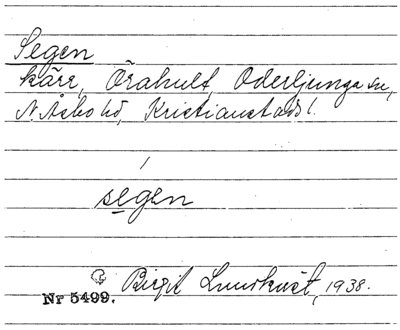 Segen
kärr, Örahult, Oderljunga sn,
N. Åsbo hd, Kristianstads l.
segen
Birgit Lundkvist, 1938.
Nr 5499.